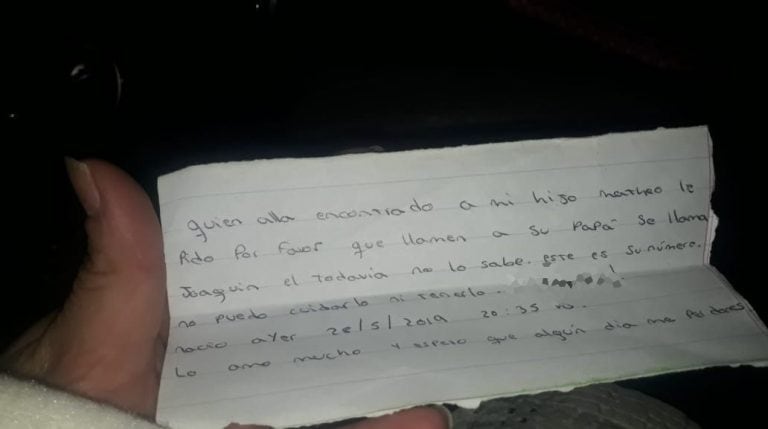 quien alla encontrado a mi hijo matheo le
Pido Por favor que llamen a su PaPá se llama
Joaquin el todavia no lo sabe. este es su número.
no puedo cuidarlo ni tenerlo. !
nacio ayer 28/5/2019 20:35 hs.
Lo amo mucho y espero que algún dia me Perdones